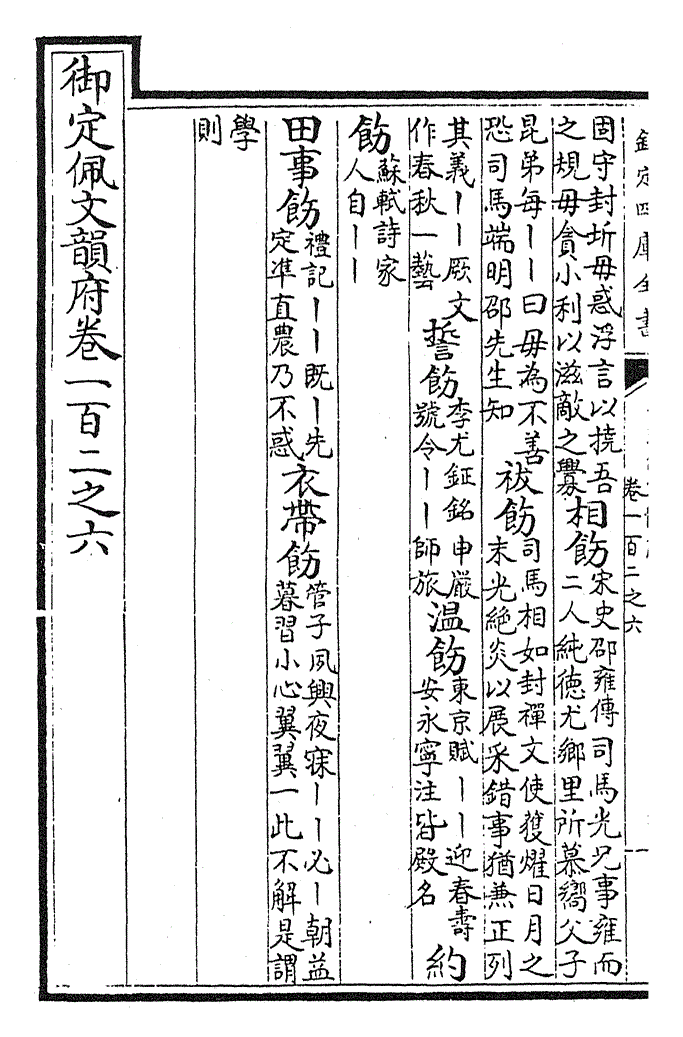 欽定四庫全書
卷一百二之六
固守封圻毋惑浮言以撓吾
之規毋貪小利以滋敵之釁
相飭
宋史邵雍傳司馬光兄事雍而
二人純德尤鄉里所慕嚮父子
昆弟每丨丨曰毋為不善
恐司馬端明邵先生知
祓飭
司馬相如封禪文使獲燿日月之
末光絶炎以展采錯事猶兼正列
其義丨丨厥文
作春秋一藝
誓飭
李尤鉦銘申嚴
號令丨丨師旅
温飭
東京賦丨丨迎春壽
安永寧注皆殿名
約
飭
蘇軾詩家
人自丨丨
田事飭
禮記丨丨既丨先
定準直農乃不惑
衣帶飭
管子夙興夜寐丨丨必丨朝益
暮習小心翼翼一此不解是謂
學
則
御定佩文韻府卷一百二之六